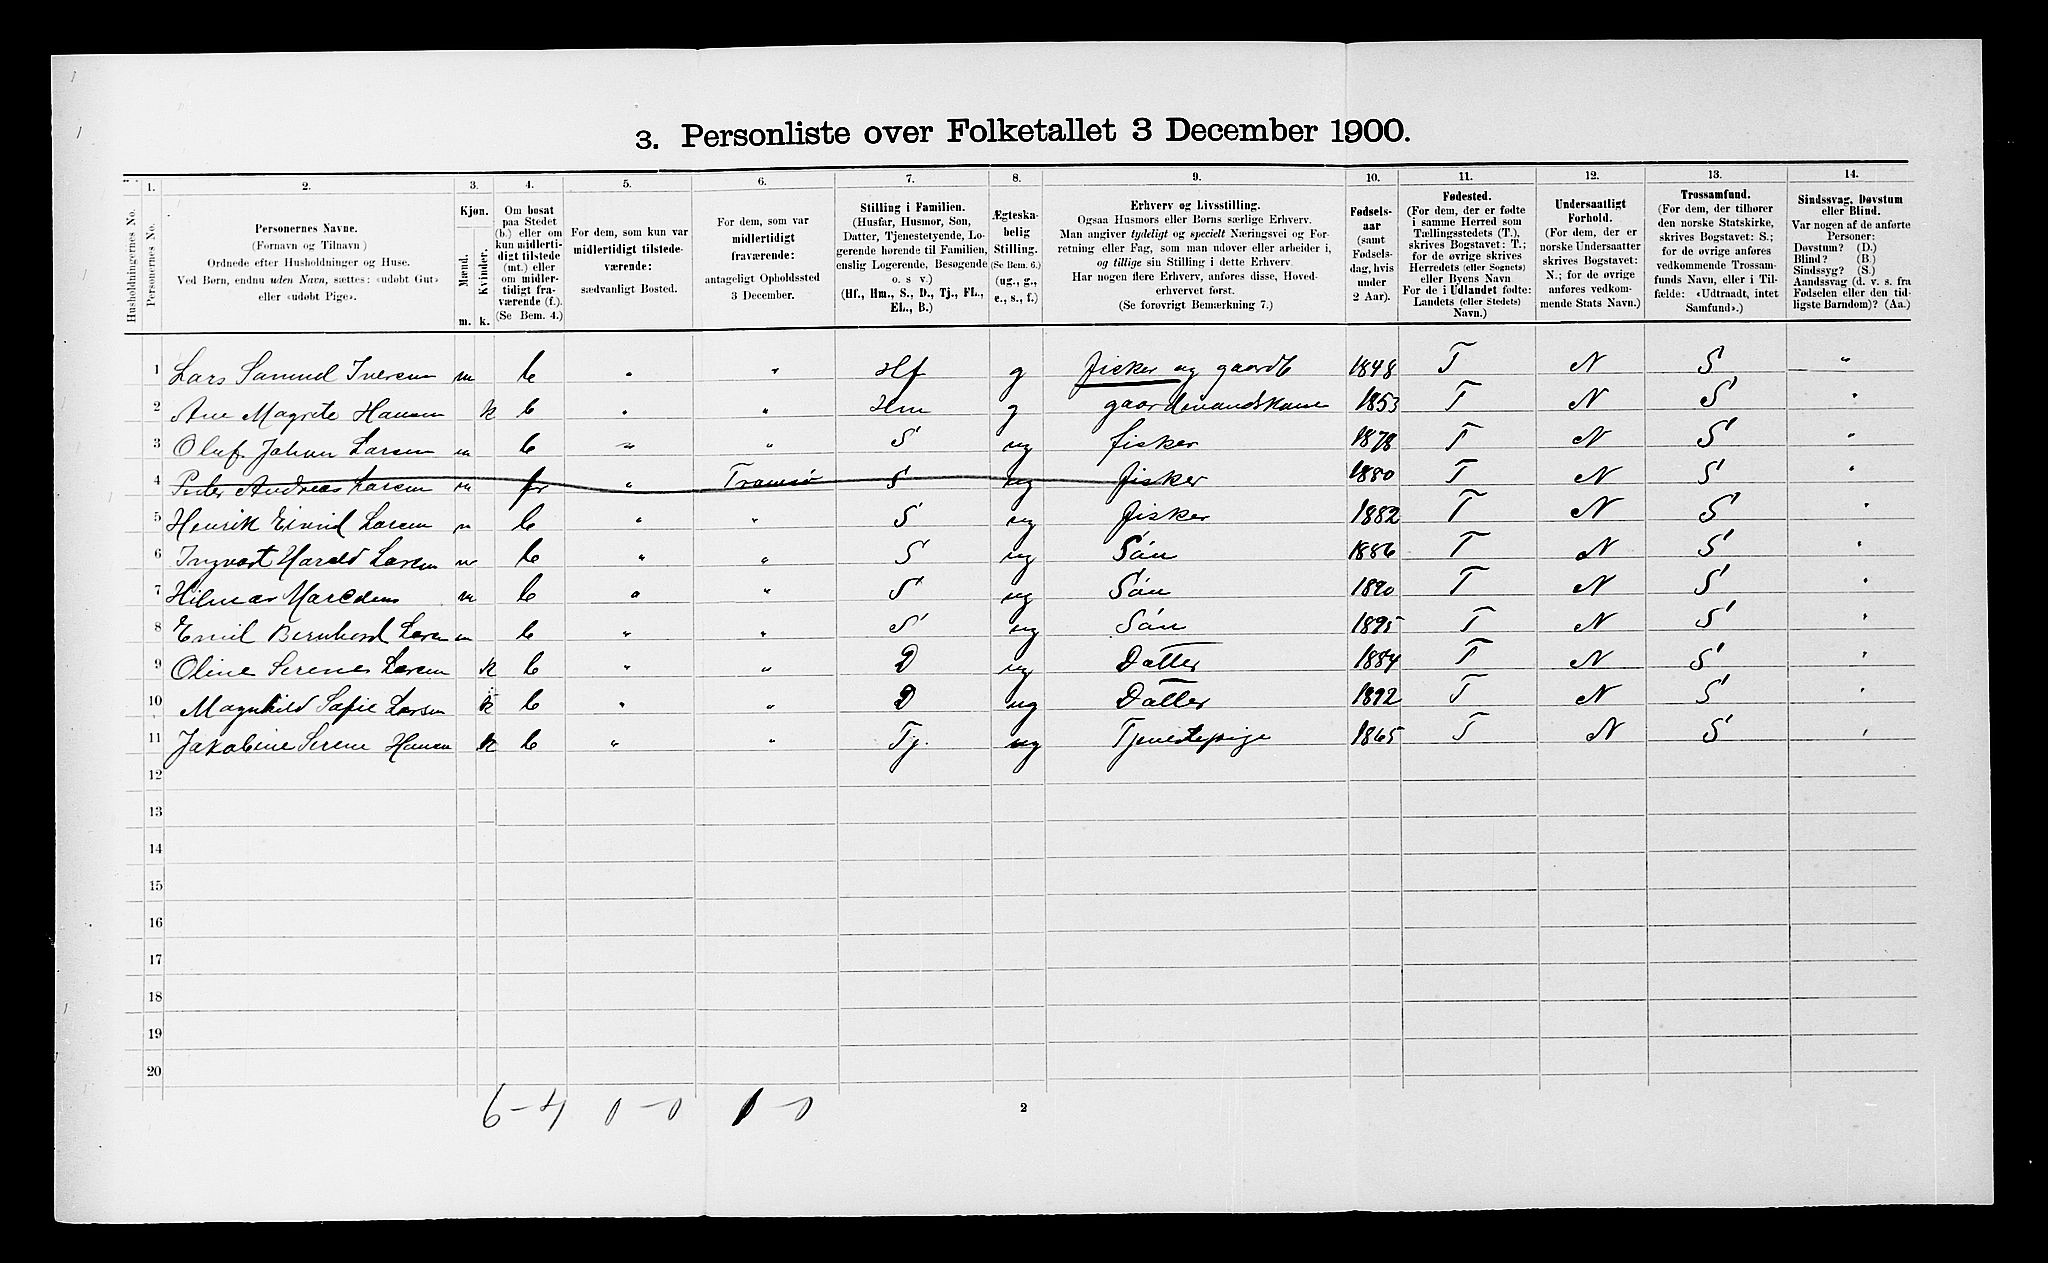 3. Personliste over Folketallet 3 December 1900.
Husholdningernes No.
1. Personernes No.
2. Personernes Navne.
(Fornavn og Tilnavn)
Ordnede efter Husholdninger og Huse.
Ved Børn, endnu uden Navn, sættes: «udøbt Gut»
eller «udøbt Pige».
3. Kjøn.
Mænd. Kvinder.
m. k.
4. Om bosat
paa Stedet
(b.) eller om
kun midlerti-
digt tilstede
(mt.) eller
om midler-
tidigt fra-
værende (f.).
(Se Bem. 4.)
5. For dem, som kun var
midlertidigt tilstede-
værende:
sædvanligt Bosted.
6. For dem, som var
midlertidigt
fraværende:
antageligt Opholdssted
3 December.
7. Stilling i Familien.
(Husfar, Husmor, Søn,
Datter, Tjenestetyende, Lo-
gerende hørende til Familien,
enslig Logerende, Besøgende
o. s v.)
(Hf., Hm., S., D., Tj., FL.,
EL., B.)
8. Ægteska-
belig
Stilling.
(Se Bem. 6.)
(ug., g.,
e., s., f.)
9. Erhverv og Livsstilling.
Ogsaa Husmors eller Børns særlige Erhverv.
Man angiver tydeligt og specielt Næringsvei og For-
retning eller Fag, som man udøver eller arbeider i,
og tillige sin Stilling i dette Erhverv.
Har nogen flere Erhverv, anføres disse, Hoved-
erhvervet først.
(Se forøvrigt Bemærkning 7.)
10. Fødsels-
aar
(samt
Fødsels-
dag, hvis
under
2 Aar).
11. Fødested.
(For dem, der er fødte
i samme Herred som
Tællingsstedets (T.),
skrives Bogstavet: T.;
for de øvrige skrives
Herredets (eller Sognets)
eller Byens Navn
For de i Udlandet fødte:
Landets (eller Stedets)
Navn.)
12. Undersaatligt
Forhold.
(For dem, der er
norske Undersaatter
skrives Bogstavet:
N.; for de øvrige
anføres vedkom-
mende Stats Navn.)
13. Trossamfund.
(For dem, der tilhører
den norske Statskirke,
skrives Bogstavet: S.;
for de øvrige anføres
vedkommende Trossam-
funds Navn, eller i Til-
fælde: «Udtraadt, intet
Samfund».)
14. Sindssvag, Døvstum
eller Blind.
Var nogen af de anførte
Personer:
Døvstum? (D.)
Blind? (B.)
Sindssyg? (S.)
Aandssvag (d. v. s. fra
Fødselen eller den tid-
ligste Barndom)? (Aa.)
1 Lars Samuel Iversen m b " " Hf g fisker og gaardb 1848 T N S "
2 Ane Magrete Hansen k b " " Hm g gaardmandskone 1853 T N S "
3 Oluf Johan Larsen m b " " S ug fisker 1878 T N S "
4 Peder Andreas Larsen m fr " Tromsø S ug fisker 1880 T N S "
5 Henrik Eivind Larsen m b " " S ug fisker 1882 T N S "
6 Ingvart Harald Larsen m b " " S ug Søn 1886 T N S "
7 Hilmar m b " " S ug Søn 1890 T N S "
8 Emil Bernhard Larsen m b " " S ug Søn 1895 T N S "
9 Oline Serene Larsen k b " " D ug Datter 1884 T N S "
10 Magnhild Sofie Larsen k b " " D ug Datter 1892 T N S "
11 Jakobine Serene Hansen k b " " Tj. ug Tjenestepige 1865 T N S "
12
13
14
15
16
17
18
19
20
2